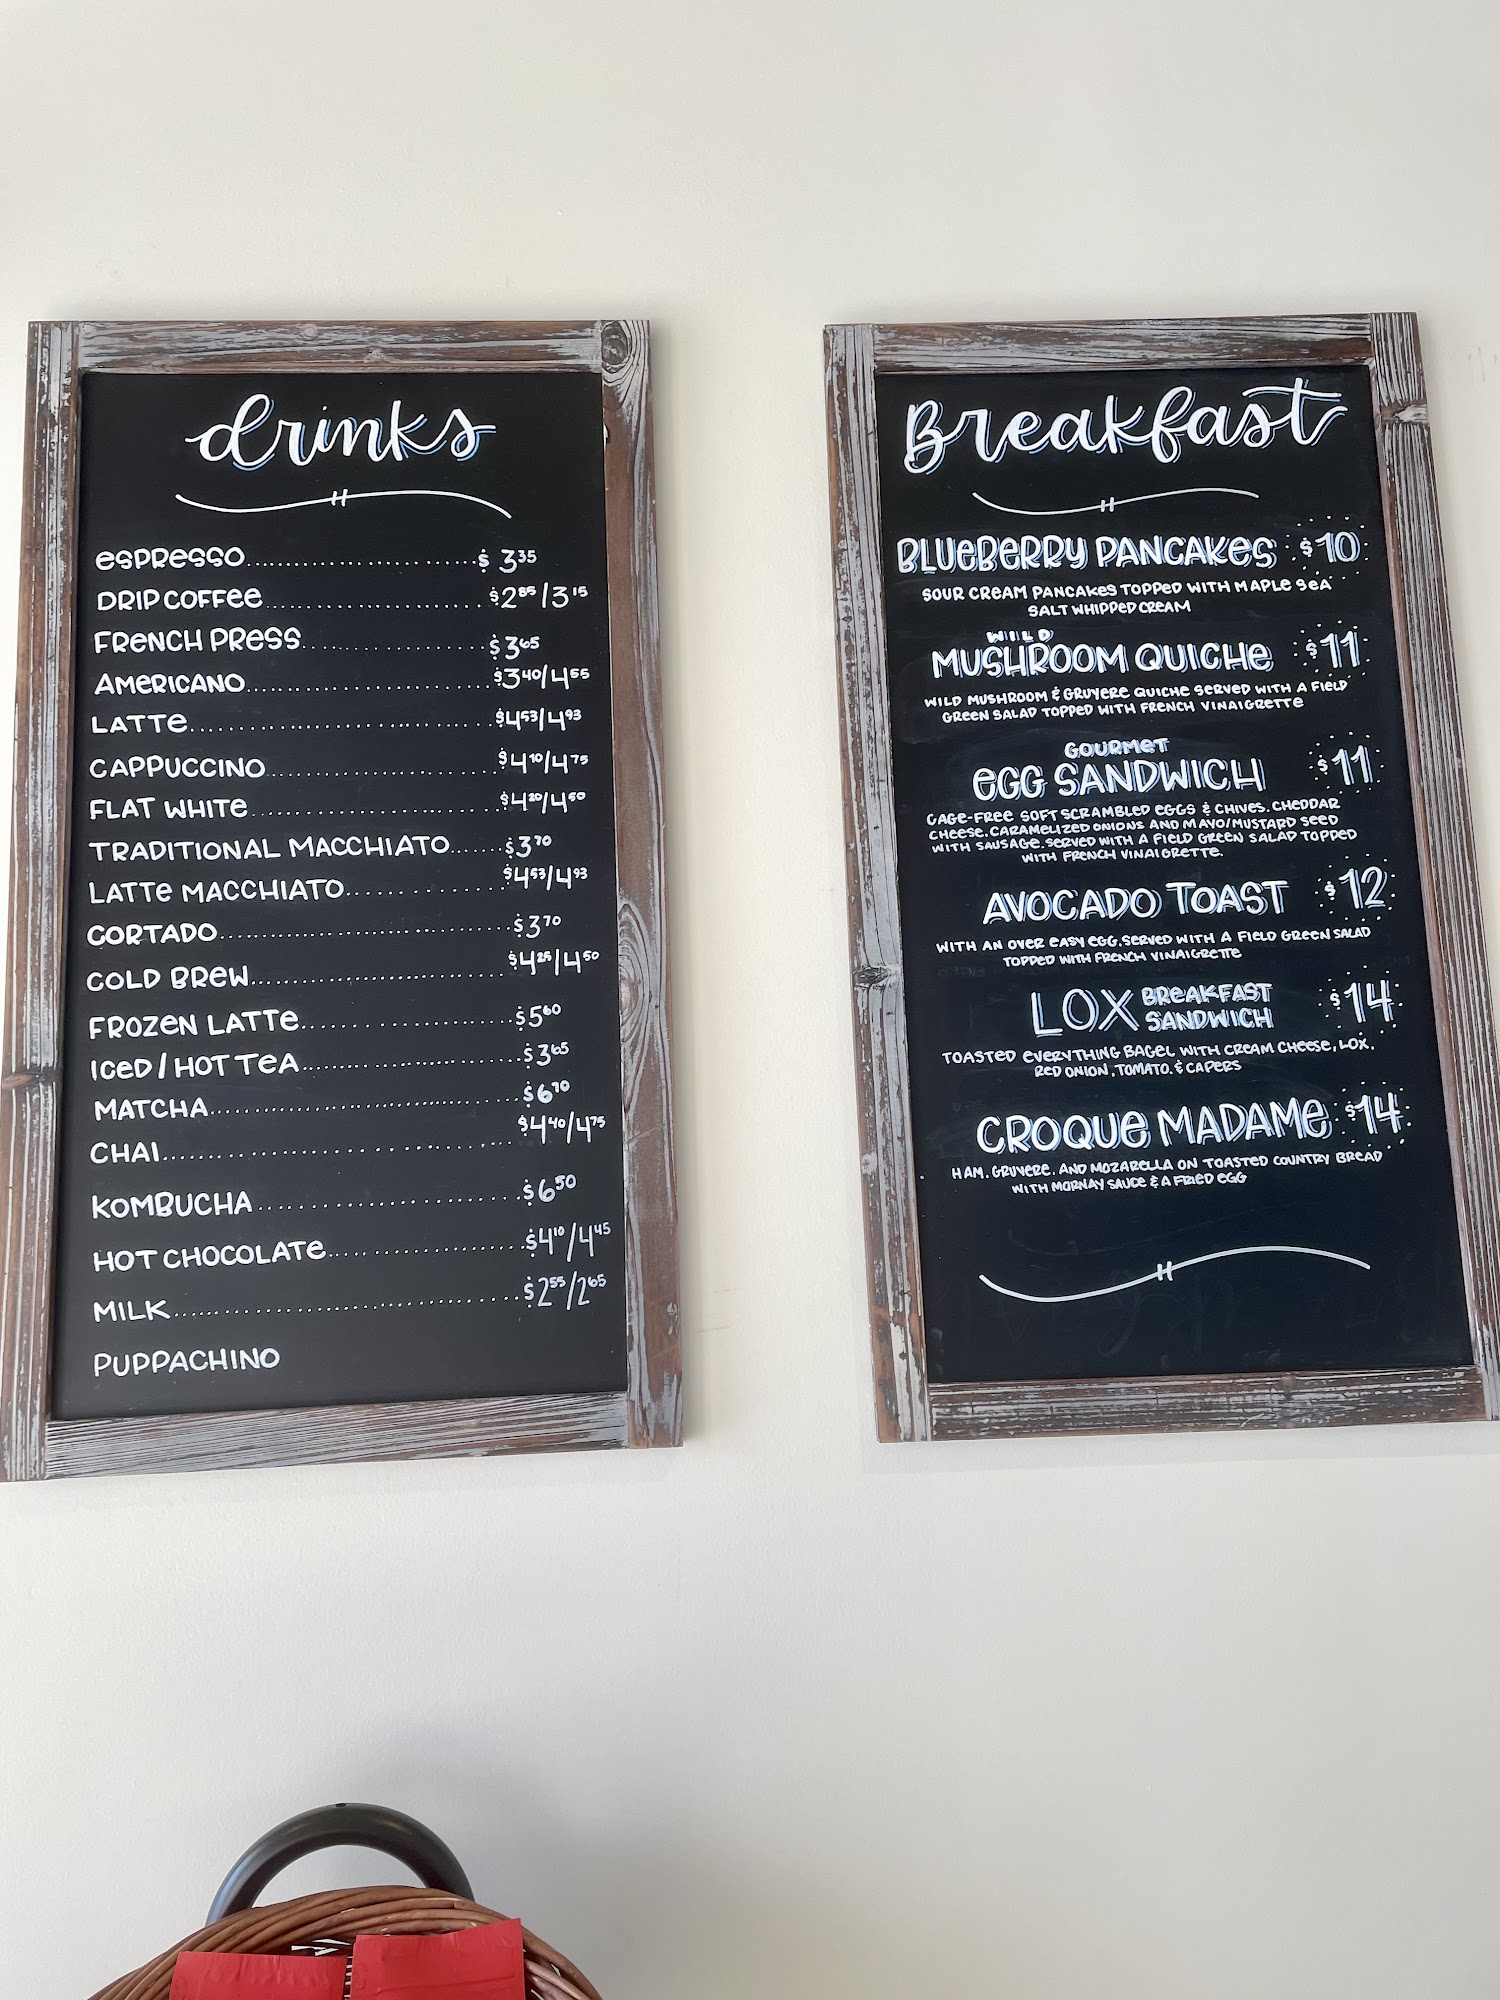 drinks
ESPRESSO $3.35
DRIP COFFEE $2.85/3.15
FRENCH PRESS $3.65
AMERICANO $3.40/4.55
LATTE $4.53/4.93
CAPPUCCINO $4.10/4.75
FLAT WHITE $4.20/4.50
TRADITIONAL MACCHIATO $3.70
LATTE MACCHIATO $4.53/4.93
CORTADO $3.70
COLD BREW $4.25/4.50
FROZEN LATTE $5.60
ICED/HOT TEA $3.65
MATCHA $6.70
CHAI $4.40/4.75
KOMBUCHA $6.50
HOT CHOCOLATE $4.10/4.45
MILK $2.55/2.65
PUPPACHINO
Breakfast
BLUEBERRY PANCAKES $10
SOUR CREAM PANCAKES TOPPED WITH MAPLE SEA
SALT WHIPPED CREAM
WILD
MUSHROOM QUICHE $11
WILD MUSHROOM & GRUYERE QUICHE SERVED WITH A FIELD
GREEN SALAD TOPPED WITH FRENCH VINAIGRETTE
GOURMET
EGG SANDWICH $11
CAGE-FREE SOFT SCRAMBLED EGGS & CHIVES, CHEDDAR
CHEESE, CARAMELIZED ONIONS AND MAYO/MUSTARD SEED
WITH SAUSAGE. SERVED WITH A FIELD GREEN SALAD TOPPED
WITH FRENCH VINAIGRETTE.
AVOCADO TOAST $12
WITH AN OVER EASY EGG. SERVED WITH A FIELD GREEN SALAD
TOPPED WITH FRENCH VINAIGRETTE
LOX BREAKFAST SANDWICH $14
TOASTED EVERYTHING BAGEL WITH CREAM CHEESE, LOX,
RED ONION, TOMATO, & CAPERS
CROQUE MADAME $14
HAM, GRUYERE, AND MOZARELLA ON TOASTED COUNTRY BREAD
WITH MORNAY SAUCE & A FRIED EGG